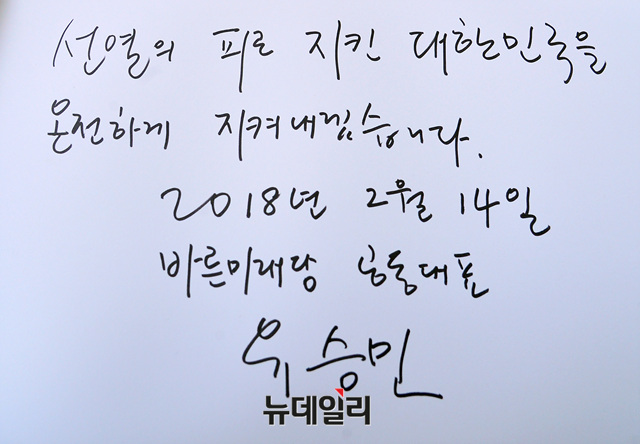 선열의 피로 지킨 대한민국을
온전하게 지켜내겠습니다.
2018년 2월 14일
바른미래당 공동대표
유승민
뉴데일리